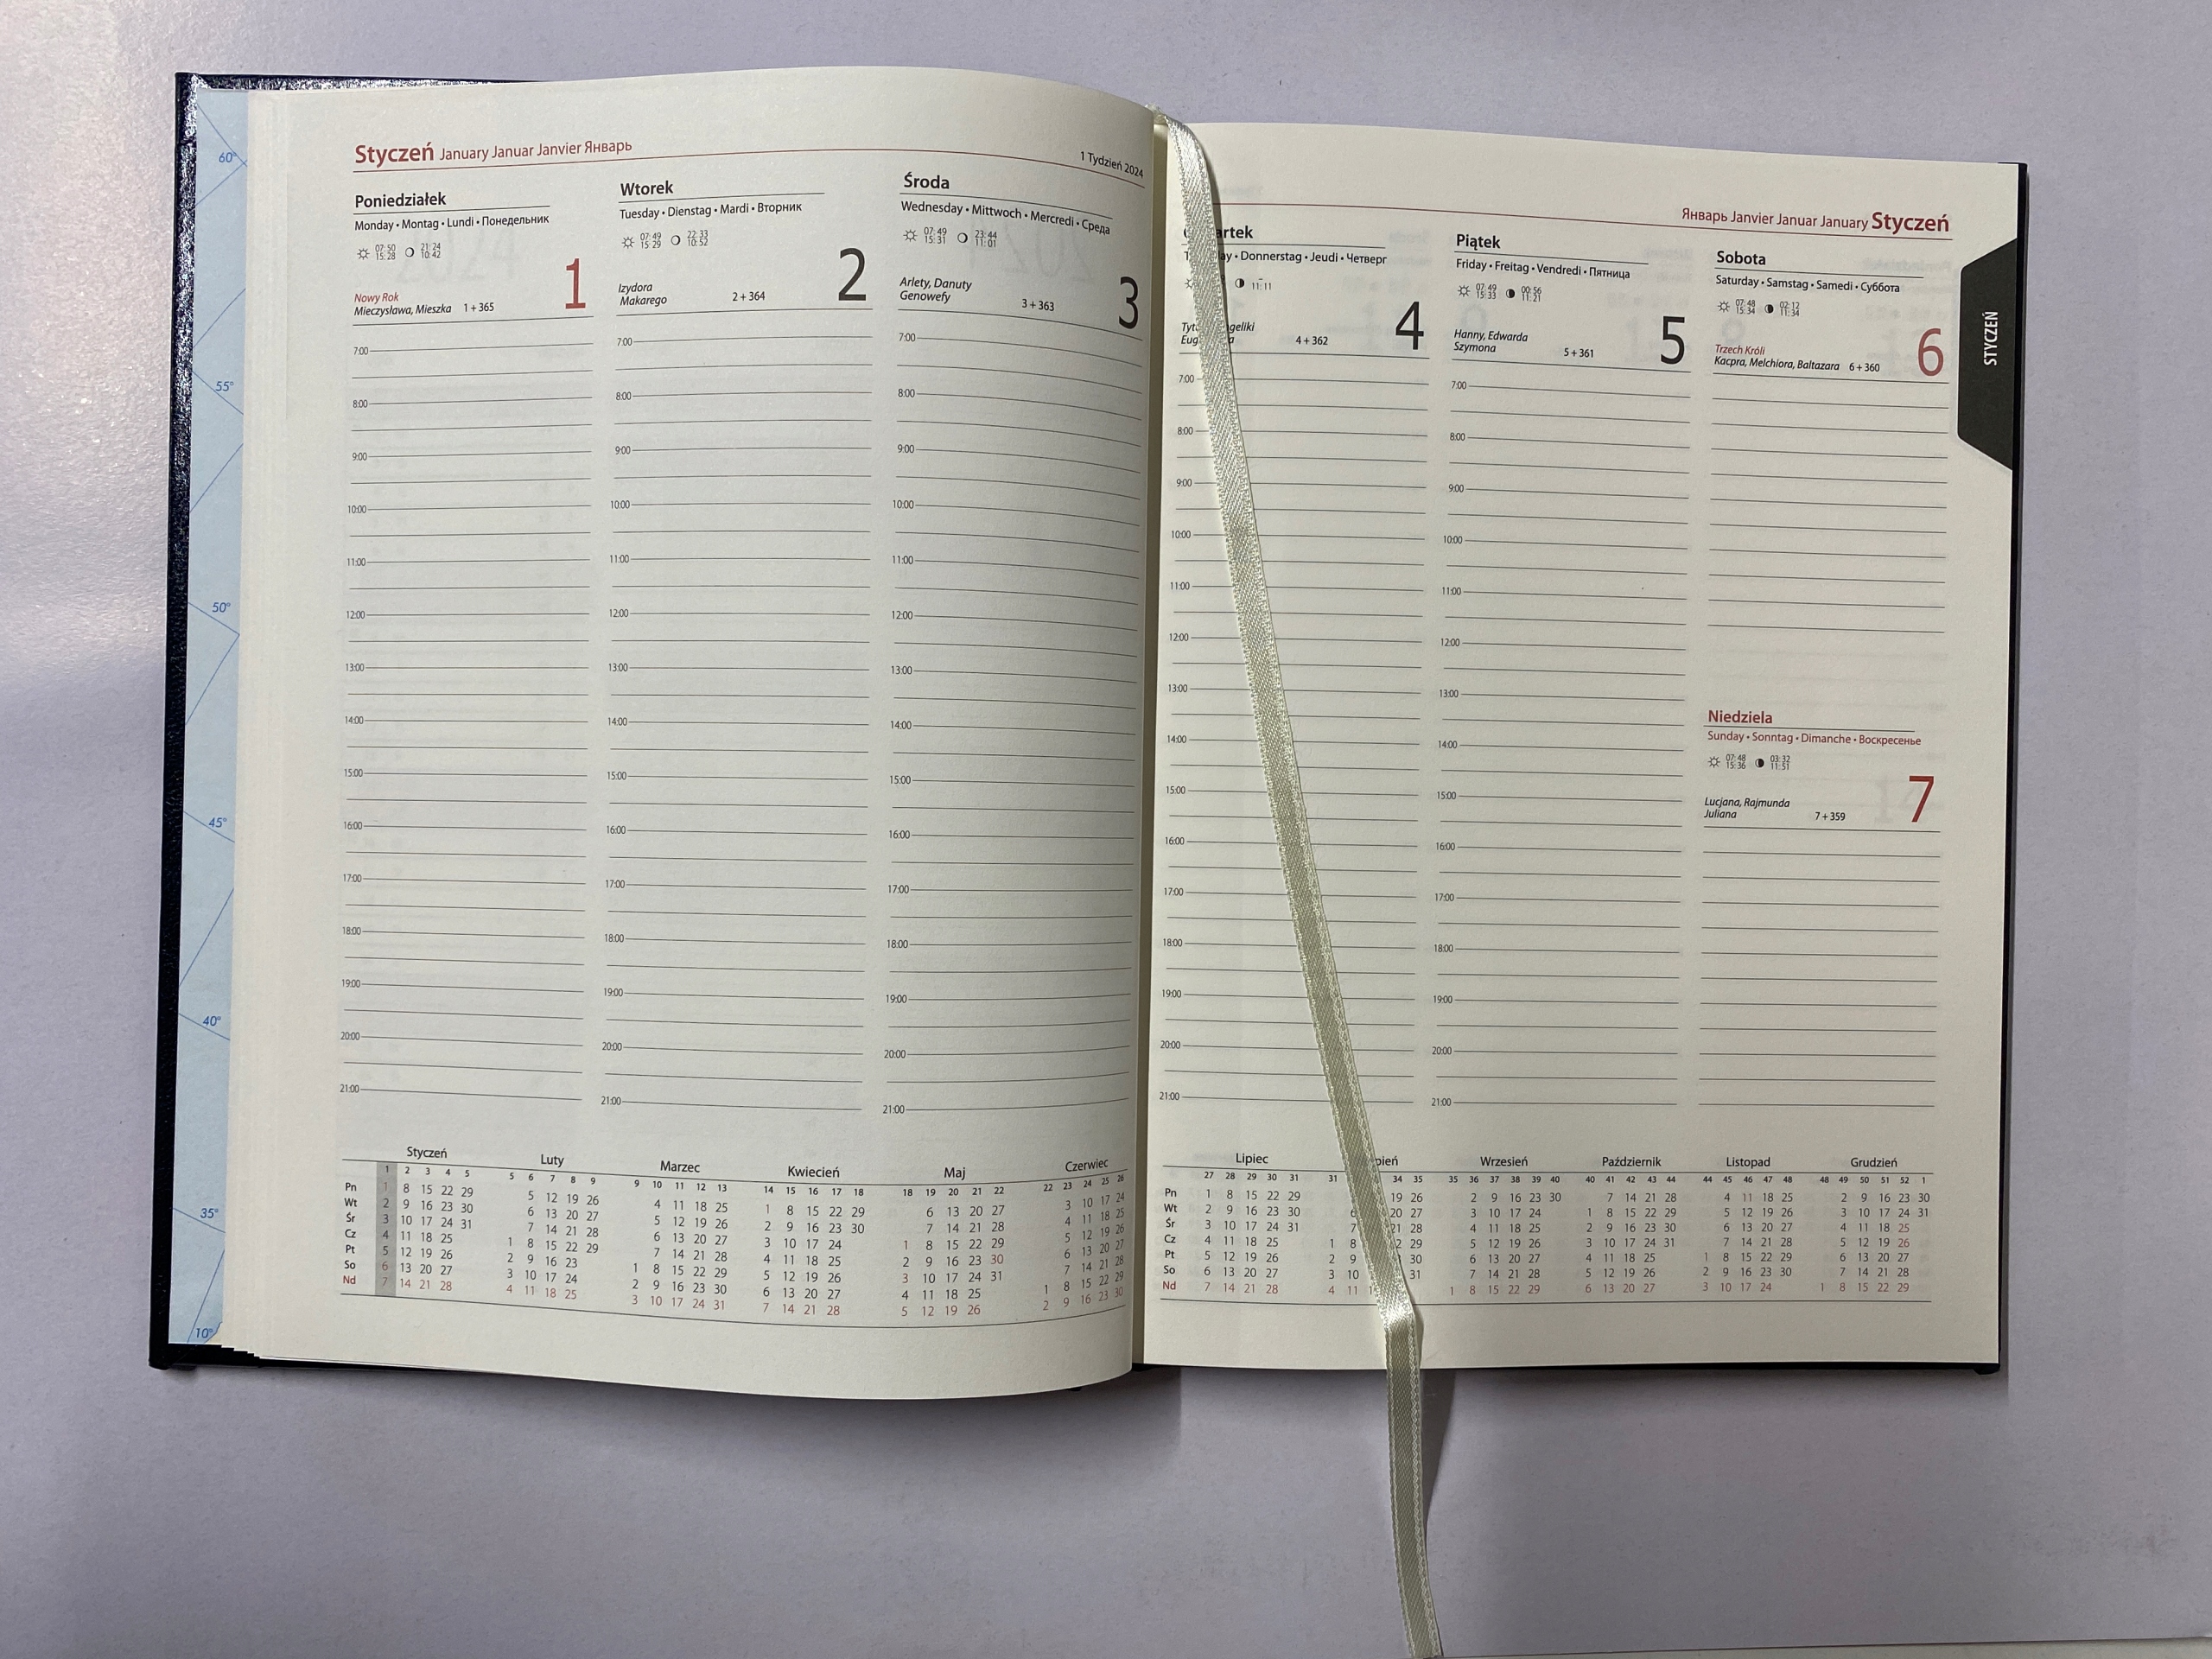 Styczeń January Januar Janvier Январь
1 Tydzień 2024
Poniedziałek
Monday • Montag • Lundi • Понедельник
07:50 21:24
15:28 10:42
Nowy Rok
Mieczysława, Mieszka 1 + 365
1
Wtorek
Tuesday • Dienstag • Mardi • Вторник
07:49 22:33
15:29 10:52
Izydora
Makarego 2 + 364
2
Środa
Wednesday • Mittwoch • Mercredi • Среда
07:49 23:44
15:31 11:01
Arlety, Danuty
Genowefy 3 + 363
3
7:00 7:00 7:00
8:00 8:00 8:00
9:00 9:00 9:00
10:00 10:00 10:00
11:00 11:00 11:00
12:00 12:00 12:00
13:00 13:00 13:00
14:00 14:00 14:00
15:00 15:00 15:00
16:00 16:00 16:00
17:00 17:00 17:00
18:00 18:00 18:00
19:00 19:00 19:00
20:00 20:00 20:00
21:00 21:00 21:00
Styczeń Luty Marzec Kwiecień Maj Czerwiec
1 2 3 4 5 5 6 7 8 9 9 10 11 12 13 14 15 16 17 18 18 19 20 21 22 22 23 24 25 26
Pn 1 8 15 22 29 5 12 19 26 4 11 18 25 1 8 15 22 29 6 13 20 27 3 10 17 24
Wt 2 9 16 23 30 6 13 20 27 5 12 19 26 2 9 16 23 30 7 14 21 28 4 11 18 25
Śr 3 10 17 24 31 7 14 21 28 6 13 20 27 3 10 17 24 1 8 15 22 29 5 12 19 26
Cz 4 11 18 25 1 8 15 22 29 7 14 21 28 4 11 18 25 2 9 16 23 30 6 13 20 27
Pt 5 12 19 26 2 9 16 23 1 8 15 22 29 5 12 19 26 3 10 17 24 31 7 14 21 28
So 6 13 20 27 3 10 17 24 2 9 16 23 30 6 13 20 27 4 11 18 25 1 8 15 22 29
Nd 7 14 21 28 4 11 18 25 3 10 17 24 31 7 14 21 28 5 12 19 26 2 9 16 23 30
60°
55°
50°
45°
40°
35°
10°
Январь Janvier Januar January Styczeń
artek
ay • Donnerstag • Jeudi • Четверг
11:11
geliki
4 + 362
4
Piątek
Friday • Freitag • Vendredi • Пятница
07:49 00:56
15:33 11:21
Hanny, Edwarda
Szymona 5 + 361
5
Sobota
Saturday • Samstag • Samedi • Суббота
07:48 02:12
15:34 11:34
Trzech Króli
Kacpra, Melchiora, Baltazara 6 + 360
6
STYCZEŃ
7:00 7:00
8:00 8:00
9:00 9:00
10:00 10:00
11:00 11:00
12:00 12:00
13:00 13:00
14:00 14:00
15:00 15:00
16:00 16:00
17:00 17:00
18:00 18:00
19:00 19:00
20:00 20:00
21:00 21:00
Niedziela
Sunday • Sonntag • Dimanche • Воскресенье
07:48 03:32
15:36 11:51
Lucjana, Rajmunda
Juliana 7 + 359
7
Lipiec pień Wrzesień Październik Listopad Grudzień
27 28 29 30 31 31 34 35 35 36 37 38 39 40 40 41 42 43 44 44 45 46 47 48 48 49 50 51 52 1
Pn 1 8 15 22 29 19 26 2 9 16 23 30 7 14 21 28 4 11 18 25 2 9 16 23 30
Wt 2 9 16 23 30 6 20 27 3 10 17 24 1 8 15 22 29 5 12 19 26 3 10 17 24 31
Śr 3 10 17 24 31 7 21 28 4 11 18 25 2 9 16 23 30 6 13 20 27 4 11 18 25
Cz 4 11 18 25 1 8 29 5 12 19 26 3 10 17 24 31 7 14 21 28 5 12 19 26
Pt 5 12 19 26 2 9 30 6 13 20 27 4 11 18 25 1 8 15 22 29 6 13 20 27
So 6 13 20 27 3 10 31 7 14 21 28 5 12 19 26 2 9 16 23 30 7 14 21 28
Nd 7 14 21 28 4 11 1 8 15 22 29 6 13 20 27 3 10 17 24 1 8 15 22 29